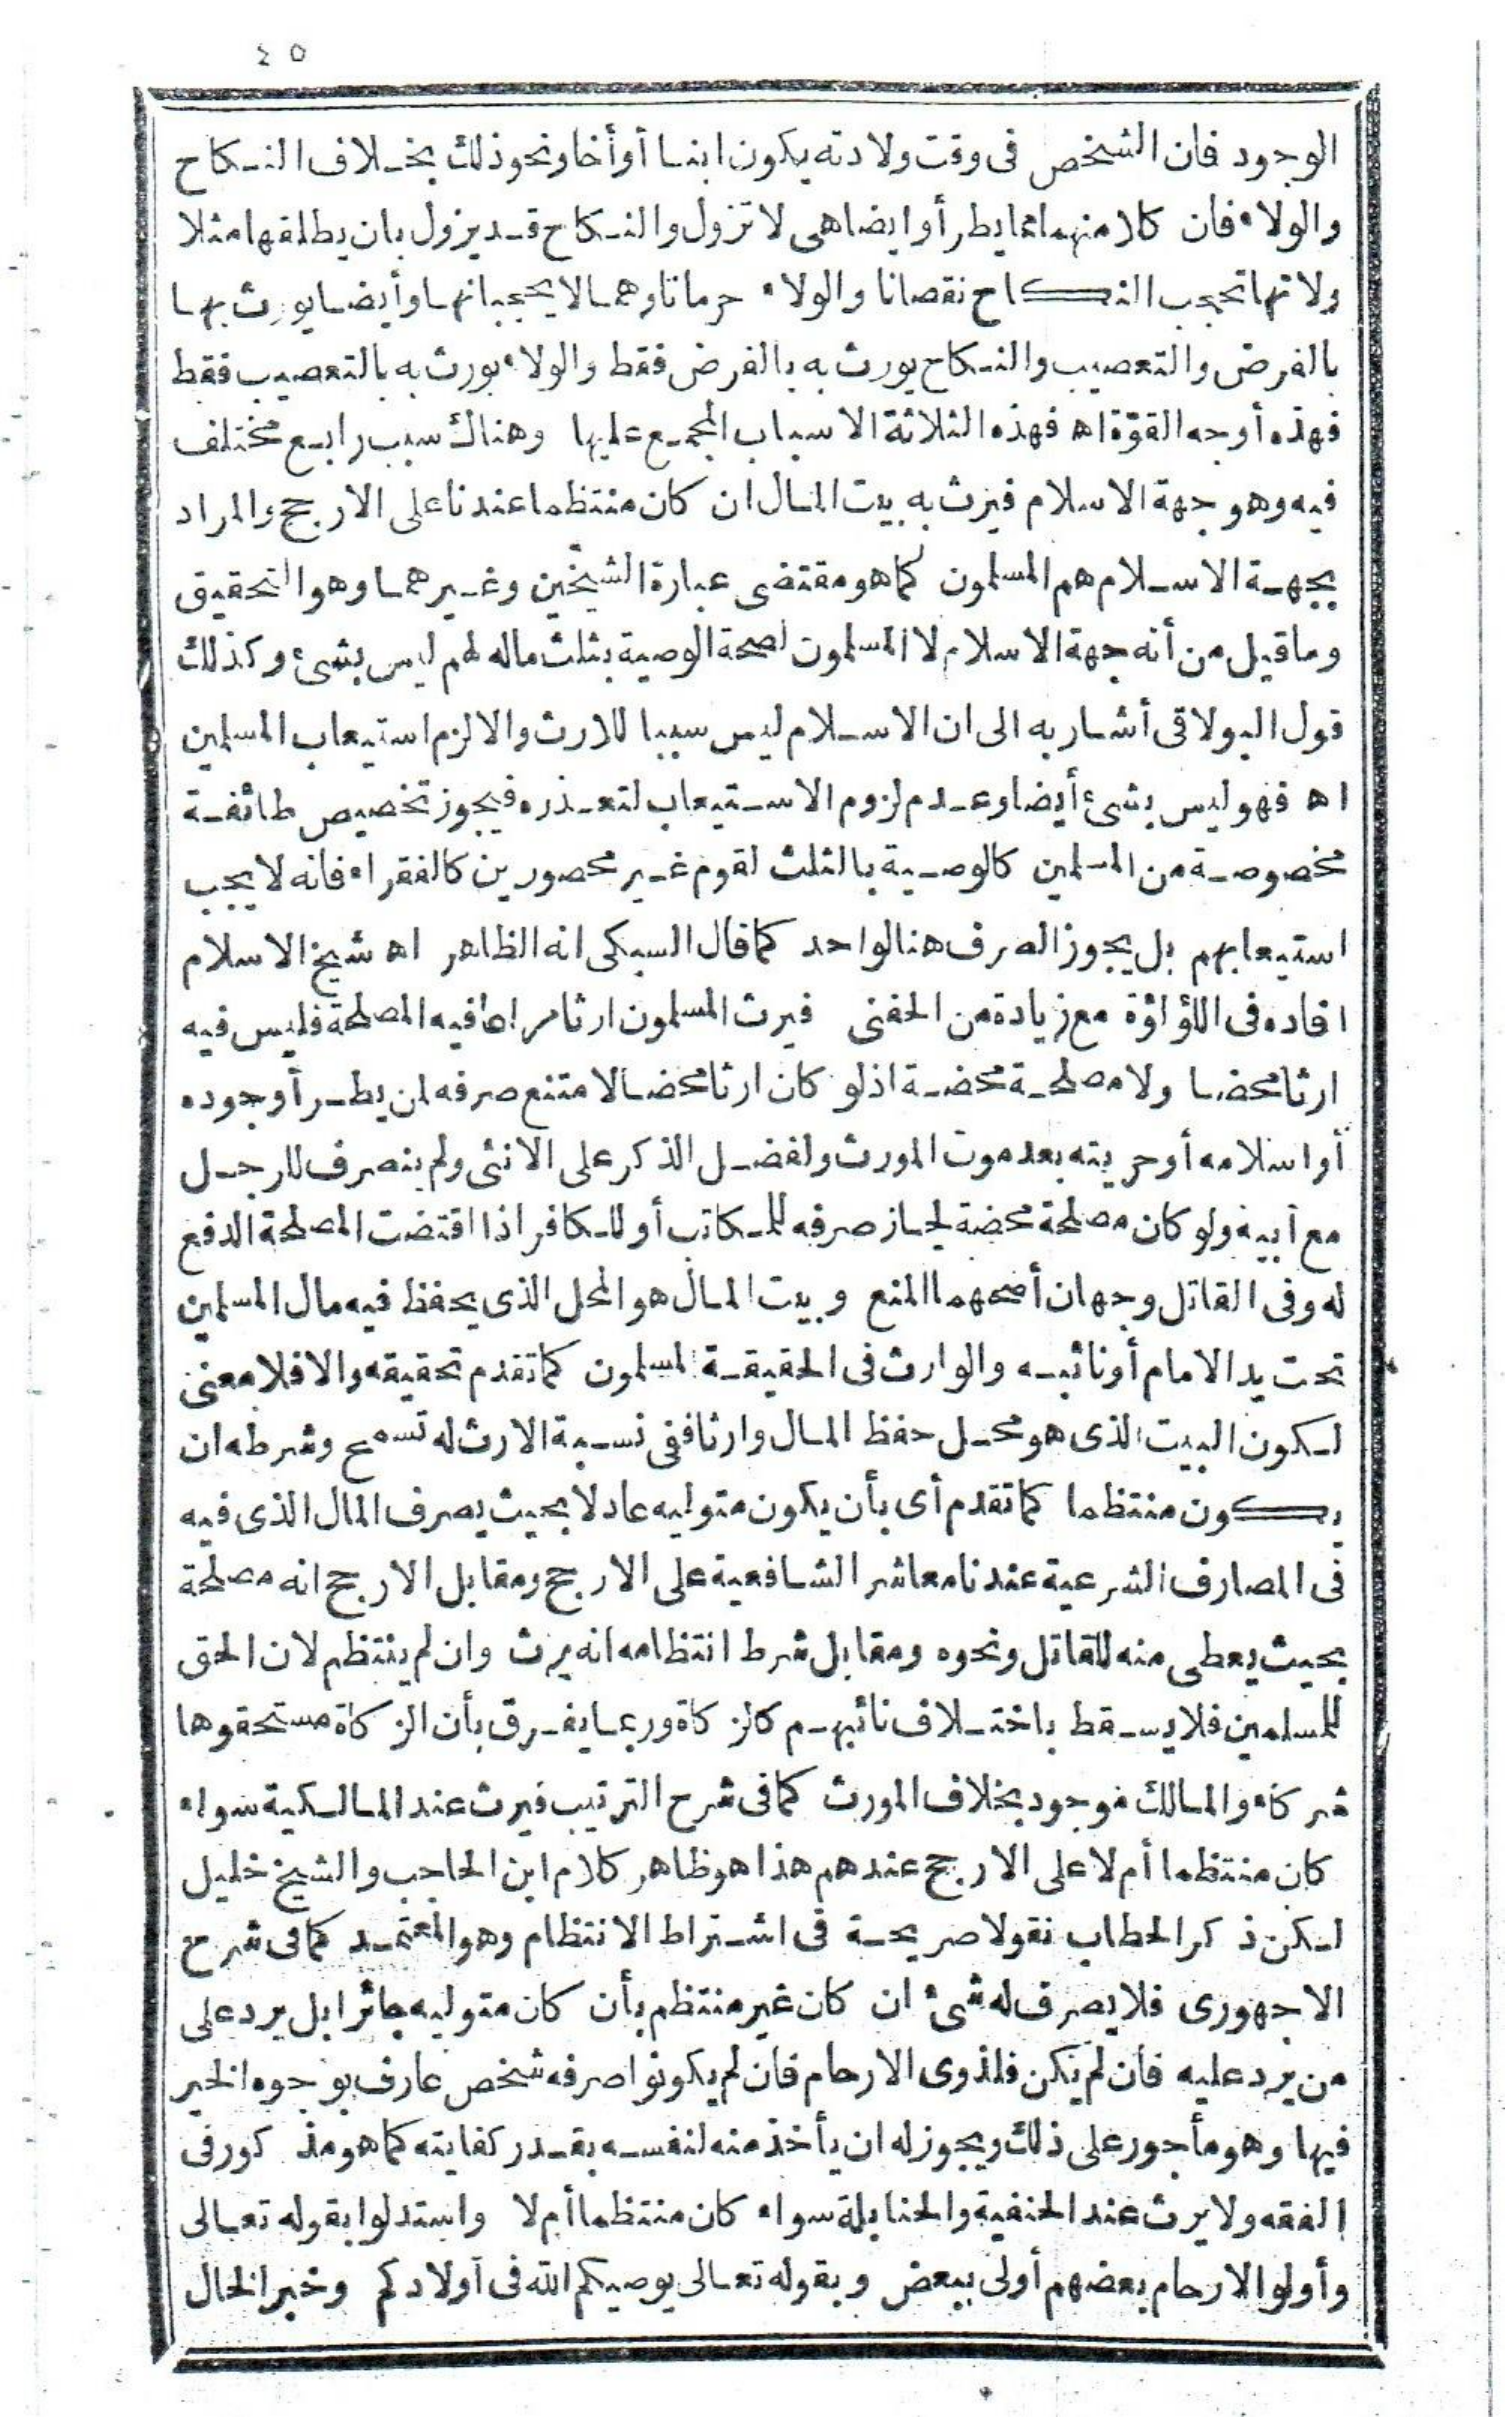 ٤٥
الوجود فان الشخص فى وقت ولادته يكون ابنا أو أخا ونحو ذلك بخلاف النكاح
والولاء فان كلا منهما انما يطرأ وايضا هى لا تزول والنكاح قد يزول بان يطلقها مثلا
ولانها تحجب النكاح نقصانا والولاء حرمانا وهما لا يحجبانها وأيضا يورث بها
بالفرض والتعصيب والنكاح يورث به بالفرض فقط والولاء يورث به بالتعصيب فقط
فهذه أوجه القوّة اه فهذه الثلاثة الاسباب المجمع عليها وهناك سبب رابع مختلف
فيه وهو جهة الاسلام فيرث به بيت المال ان كان منتظما عندنا على الارجح والمراد
بجهة الاسلام هم المسلمون كما هو مقتضى عبارة الشيخين وغيرهما وهو التحقيق
وما قيل من أنه جهة الاسلام لا المسلمون لصحة الوصية بثلث ماله لهم ليس بشئ وكذلك
قول البولاقى أشار به الى ان الاسلام ليس سببا للارث والا لزم استيعاب المسلمين
اه فهو ليس بشئ أيضا وعدم لزوم الاستيعاب لتعذره فيجوز تخصيص طائفة
مخصوصة من المسلمين كالوصية بالثلث لقوم غير محصورين كالفقراء فانه لا يجب
استيعابهم بل يجوز الصرف هنا لواحد كما قال السبكى انه الظاهر اه شيخ الاسلام
افاده فى اللؤلؤة مع زيادة من الحفنى فيرث المسلمون ارثا مراعا فيه المصلحة فليس فيه
ارثا محضا ولا مصلحة محضة اذ لو كان ارثا محضا لامتنع صرفه لمن يطرأ وجوده
أو اسلامه أو حريته بعد موت المورث ولفضل الذكر على الانثى ولم ينصرف للرجل
مع أبيه ولو كان مصلحة محضة لجاز صرفه للمكاتب أو للكافر اذا اقتضت المصلحة الدفع
له وفى القاتل وجهان أصحهما المنع وبيت المال هو المحل الذى يحفظ فيه مال المسلمين
تحت يد الامام أو نائبه والوارث فى الحقيقة المسلمون كما تقدم تحقيقه والا فلا معنى
لكون البيت الذى هو محل حفظ المال وارثا ففى نسبة الارث له تسمح وشرطه ان
يكون منتظما كما تقدم أى بأن يكون متوليه عادلا بحيث يصرف المال الذى فيه
فى المصارف الشرعية عندنا معاشر الشافعية على الارجح ومقابل الارجح انه مصلحة
بحيث يعطى منه للقاتل ونحوه ومقابل شرط انتظامه انه يرث وان لم ينتظم لان الحق
للمسلمين فلا يسقط باختلاف نائبهم كالزكاة وربما يفرق بأن الزكاة مستحقوها
شركاء والمالك موجود بخلاف المورث كما فى شرح الترتيب فيرث عند المالكية سواء
كان منتظما أم لا على الارجح عندهم هذا هو ظاهر كلام ابن الحاجب والشيخ خليل
لكن ذكر الحطاب نقولا صريحة فى اشتراط الانتظام وهو المعتمد كما فى شرح
الاجهورى فلا يصرف له شئ ان كان غير منتظم بأن كان متوليه جائرا بل يرد على
من يرد عليه فان لم يكن فلذوى الارحام فان لم يكونوا صرفه شخص عارف بوجوه الخير
فيها وهو مأجور على ذلك ويجوز له ان يأخذ منه لنفسه بقدر كفايته كما هو مذكور فى
الفقه ولا يرث عند الحنفية والحنابلة سواء كان منتظما أم لا واستدلوا بقوله تعالى
وأولوا الارحام بعضهم أولى ببعض وبقوله تعالى يوصيكم الله فى أولادكم وخبر الخال